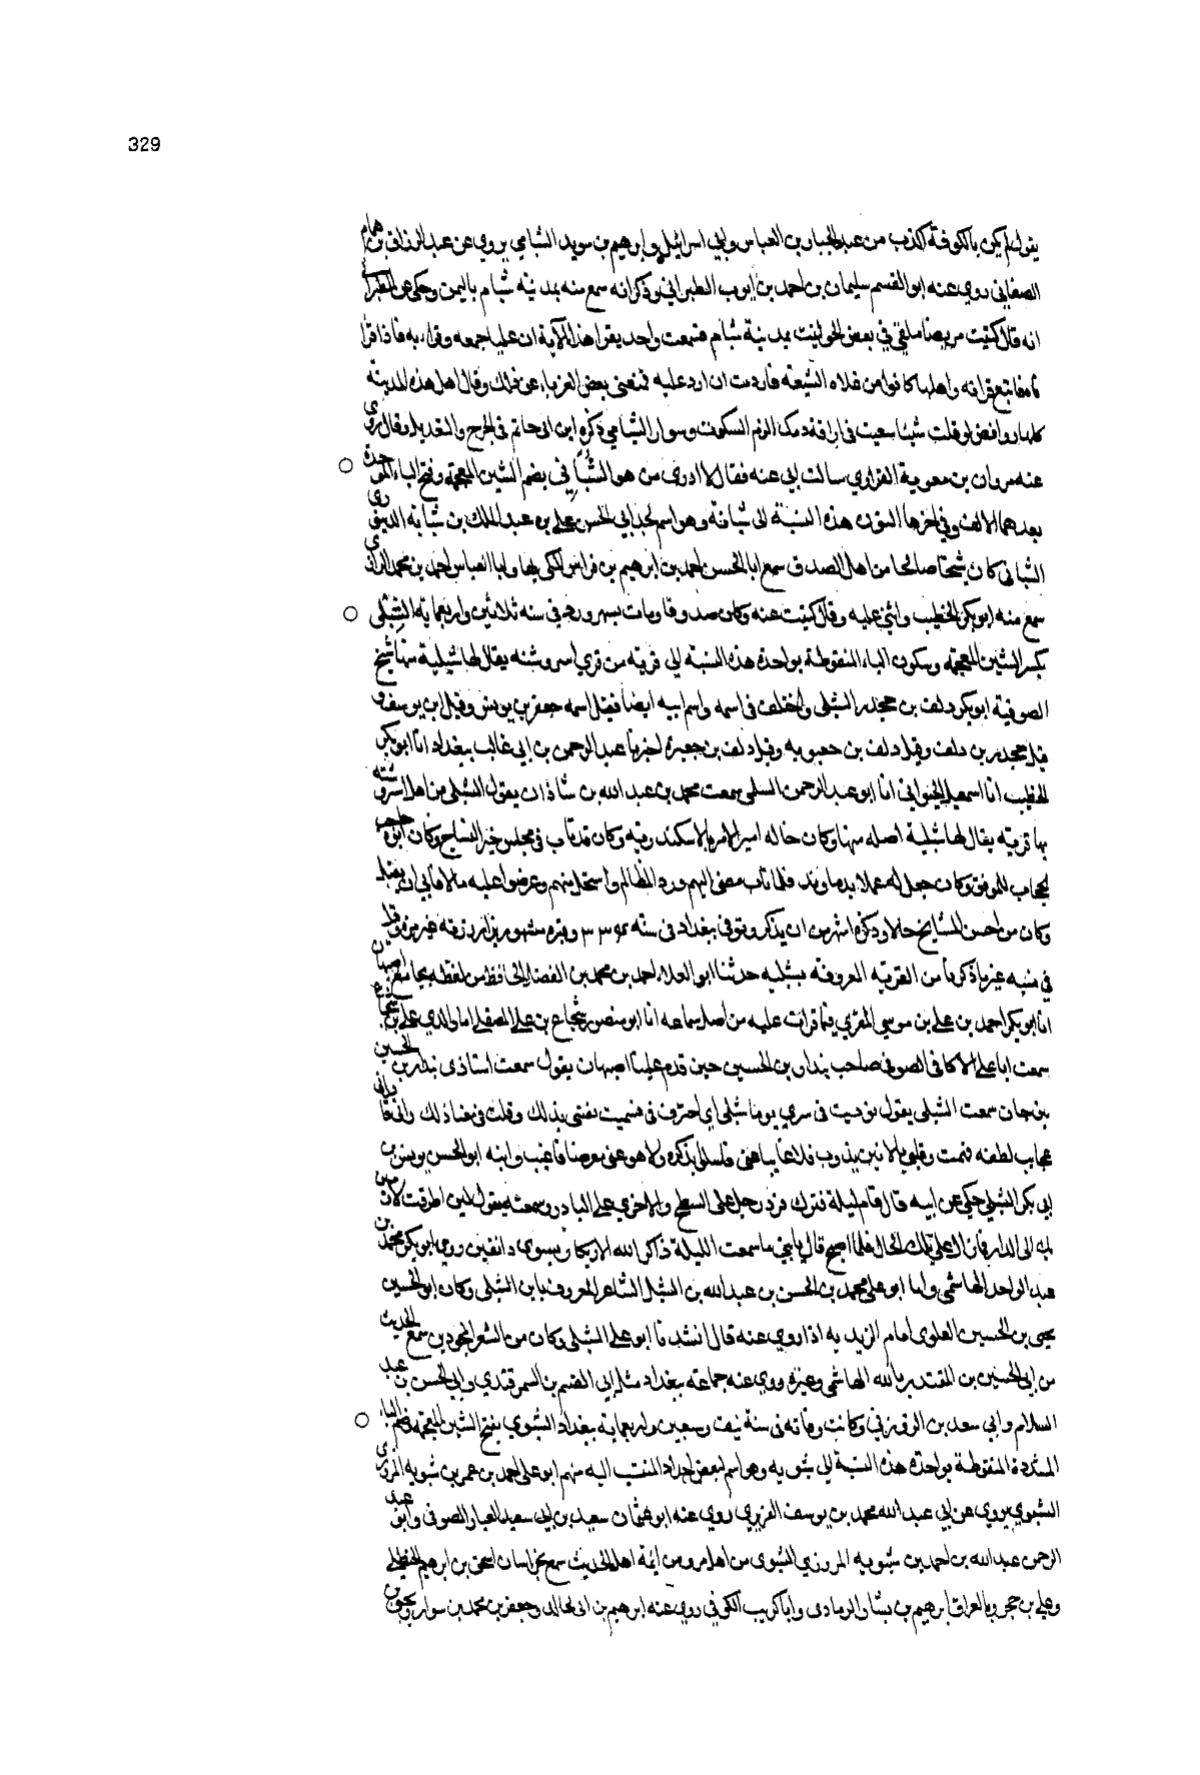 329
يقول لم يكن بالكوفة اكذب من عبد الجبار بن العباس وابي اسرائيل وابرهيم بن سويد الشبامي يروي عن عبد الرزاق بن همام
الصغاني روي عنه ابو القسم سليمان بن احمد بن ايوب الطبراني وذكر انه سمع منه بمدينة شبام باليمن وحكي عن الطبراني
انه قال كنت مريضا ملقي في بعض الخوانيت بمدينة شبام فسمعت واحد يقرا هذه الآية ان عليا جمعه وقراء به فاذا قرا
ناه فاتبع قرانه واهلها كانوا من غلاه الشيعة فاردت ان ارد عليه فمنعني بعض الغرباء عن ذلك وقال اهل هذه المدينة
كلها روافض لو قلت شيئا سعيت في اراقة دمك الزم السكوت وسوار الشبامي ذكره ابن ابي حاتم في الجرح والتعديل وقال روي
عنه مروان بن معوية الفزاري سالت ابي عنه فقال لا ادري من هو الشباني بضم الشين المعجمة وفتح الباء الموحدة
بعدهما الالف وفي اخرها النون هذه النسبة الى شبانة وهو اسم لجد ابي الحسن علي بن عبد الملك بن شبابة الدينوري
الشباني كان شيخا صالحا من اهل الصدق سمع ابا الحسن احمد بن ابرهيم بن فراس المكي بها وابا العباس احمد بن محمد الرازي
سمع منه ابو بكر الخطيب واثني عليه وقال كتبت عنه وكان صدوقا ومات بسهرورد في سنه ثلاثين واربعماية الشبلي
بكسر الشين المعجمة وسكون الباء المنقوطة بواحدة هذه النسبة الي قرية من قري اسروشنه يقال لها شبلية منها شيخ
الصوفية ابو بكر دلف بن جحدر الشبلي واختلف في اسمه واسم ابيه ايضا فقيل اسمه جعفر بن يونس وقيل ابن يوسف و
قيل جحدر بن دلف وقيل دلف بن جعبويه وقيل دلف بن جعبرة اخبرنا عبد الرحمن بن ابي غالب ببغداد انا ابو بكر
الخطيب انا اسمعيل الحيري انا ابو عبد الرحمن السلمي سمعت محمد بن عبد الله بن شاذان يقول الشبلي من اهل اسروشنه
بها قرية يقال لها شبلية اصله منها وكان خاله امير الامرا بالاسكندرية وكان قد تاب في مجلس خير النساج وكان ابوه حاجب
الحجاب للموفق وكان جعل له عملا بدماوند فلما تاب مضي اليهم ورد المظالم واستحل منهم وعرضوا عليه مالا فابي ان يقبل
وكان من احسن المشايخ حالا وذكره اشهر من ان يذكر وتوفي ببغداد في سنة ٣٣٤ وقبره مشهور يزار زرته غير مرة وقيل
في نسبه غير ما ذكرنا من القرية المعروفة بشبلية حدثنا ابو العلاء احمد بن محمد بن الفضل الحافظ من لفظه بجامع اصبهان
انا ابو بكر احمد بن علي بن موسي المقري فيما قرات عليه من اصل سماعه انا ابو منصور شجاع بن علي الصقلي انا والدي علي بن شجاع
سمعت ابا علي الاكافي الصوفي صاحب بندار بن الحسين حين قدم علينا اصبهان يقول سمعت استاذي بندار بن الحسين
بن جان سمعت الشبلي يقول نوديت في سري يوما شبلي اي احترق في فسميت نفسي بذلك وقلت في معنا ذلك راني فارا
عجايب لطفه فهمت وقلبي بالانين يذوب فلا غايبا عني فاسلو بذكره ولا هو عني معرضا فاغيب وابنه ابو الحسن يونس بن
ابي بكر الشبلي حكي عن ابيه قال قام ليلة فترك فرد رجل علي السطح والاخري علي الدار وسمعته يقول لئن اطرقت لارمين
بك الى الدار فما زال علي تلك الحال فلما اصبح قال يا بني ما سمعت الليلة ذاكرا لله الا ديكا يسوي دانقين روي ابو بكر محمد بن
عبد الواحد الهاشمي واما ابو علي محمد بن الحسن بن عبد الله بن الشبل الشاعر المعروف بابن الشبلي وكان ابو الحسين
يحيي بن الحسين العلوي امام الزيدية اذا روي عنه قال انشدنا ابو علي الشبلي وكان من الشعرا المجودين سمع الحديث
من ابي الحسين بن المقتدر بالله الهاشمي وغيره روي عنه جماعة ببغداد مثل ابي القسم بن السمرقندي وابي الحسن بن عبد
السلام وابي سعد بن الزوزني وكانت وفاته في سنة نيف وسبعين واربعماية ببغداد الشبوي بفتح الشين المعجمة وضم الباء
المشددة المنقوطة بواحدة هذه النسبة الي شبويه وهو اسم لبعض اجداد المنتسب اليه منهم ابو علي احمد بن عمر بن شبويه المروزي
الشبوي يروي عن ابي عبد الله محمد بن يوسف الفربري روي عنه ابو عثمان سعيد بن ابي سعيد العيار الصوفي وابو عبد
الرحمن عبد الله بن احمد بن شبويه المروزي الشبوي من اهل مرو من ائمة اهل الحديث سمع بخراسان اسحق بن ابرهيم الحنظلي
وعلي بن حجر وبالعراق ابرهيم بن بشار الرمادي وابا كريب الكوفي روي عنه ابرهيم بن ابي طالب وجعفر بن محمد بن سوار ويحيي بن